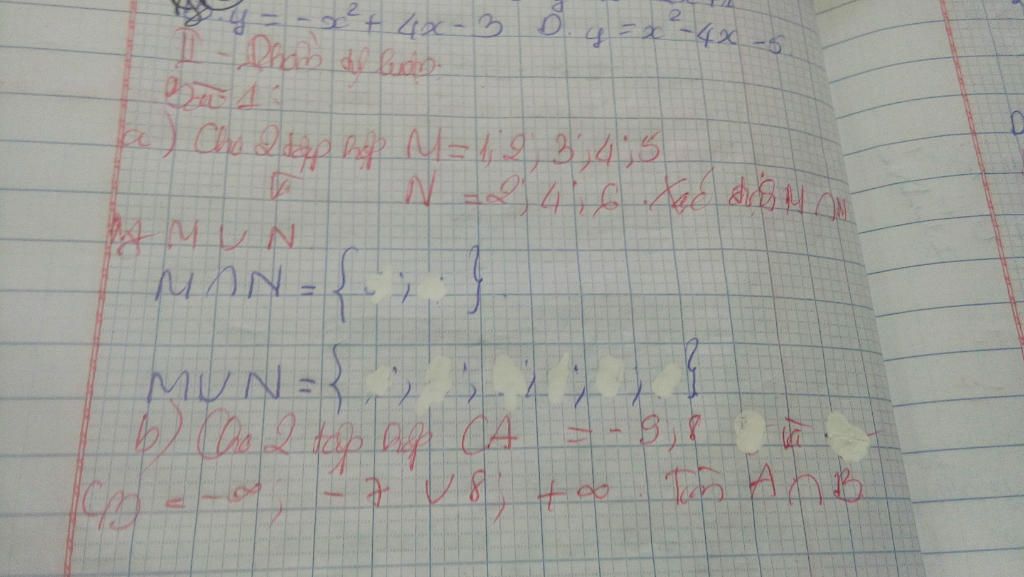 y = -x² + 4x - 3 D. y = x² - 4x - 5
II - Phần tự luận.
Bài 1:
a) Cho 2 tập hợp M = 1; 2; 3; 4; 5
và N = 2; 4; 6. Xác định M ∩ N
M ∪ N
M ∩ N = { ; }
M ∪ N = { ; ; ; ; ; }
b) Cho 2 tập hợp CA = -9; 8 và
CB = -∞; -7 ∪ 8; +∞. Tìm A ∩ B